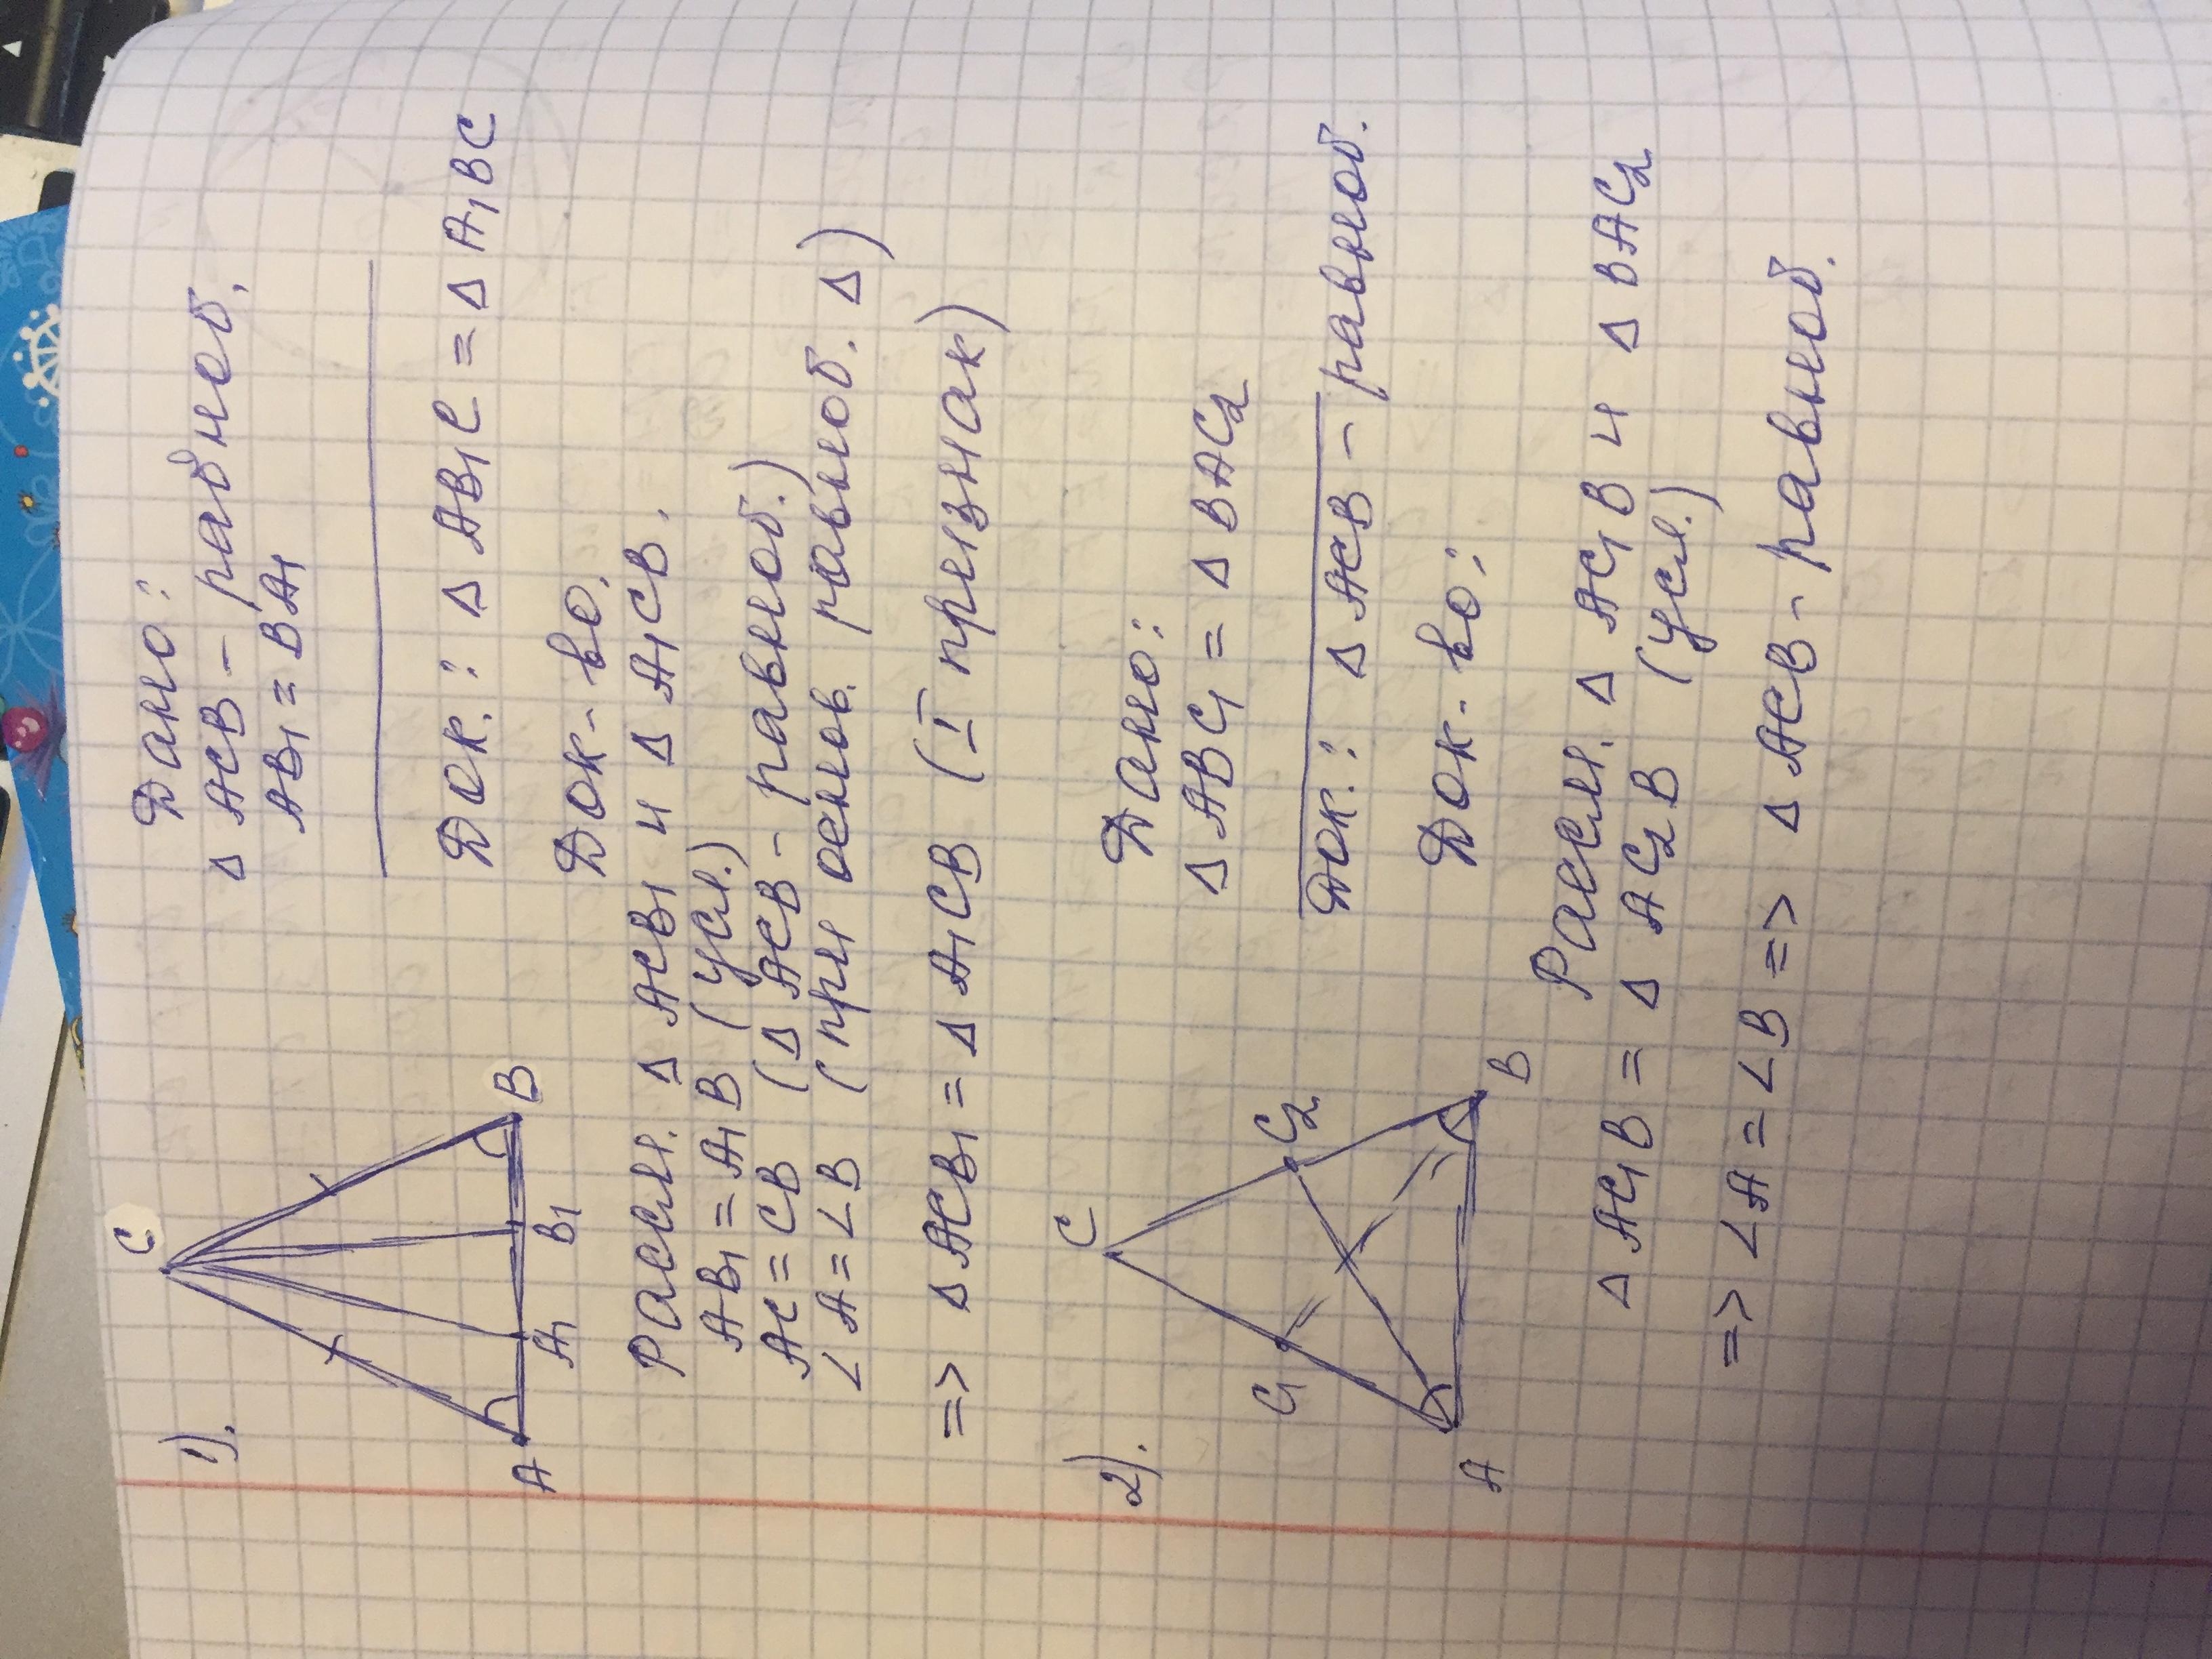 1).
C
A
A₁
B₁
B
Дано:
Δ ACB - равноб.
AB₁ = BA₁
Док.: Δ AB₁C = Δ A₁BC
Док-во.
Рассм. Δ ACB₁ и Δ A₁CB.
AB₁ = A₁B (усл.)
AC = CB (Δ ACB - равноб.)
∠A = ∠B (при основ. равноб. Δ)
=> Δ ACB₁ = Δ A₁CB (I признак)
2).
C
C₁
C₂
A
B
Дано:
Δ ABC₁ = Δ BAC₂
Док.: Δ ACB - равноб.
Док-во:
Рассм. Δ AC₁B и Δ BAC₂
Δ AC₁B = Δ AC₂B (усл.)
=> ∠A = ∠B => Δ ACB - равноб.